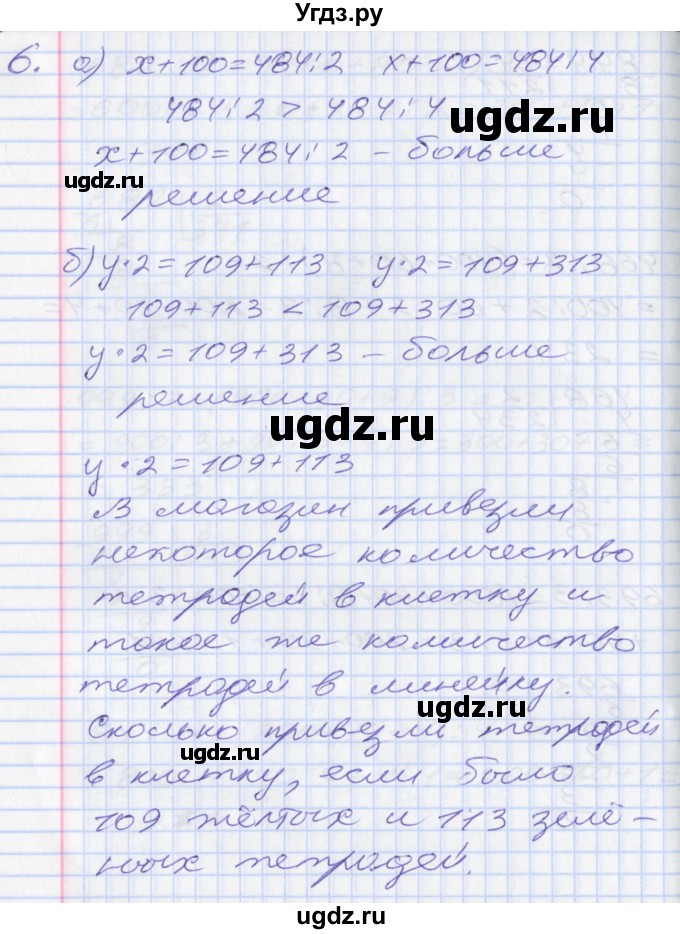 Угдз.ру
6. а) x+100=484:2 x+100=484:4
484:2 > 484:4
ugdz.ru
x+100=484:2 - больше
ugdz.ru
решение
б) y·2=109+113 y·2=109+313
109+113 < 109+313
y·2=109+313 - больше
решение
ugdz.ru
y·2=109+113
В магазин привезли
некоторое количество
тетрадей в клетку и
такое же количество
тетрадей в линейку.
ugdz.ru
Сколько привезли тетрадей
ugdz.ru
в клетку, если было
109 жёлтых и 113 зелё-
ных тетрадей.
ugdz.ru